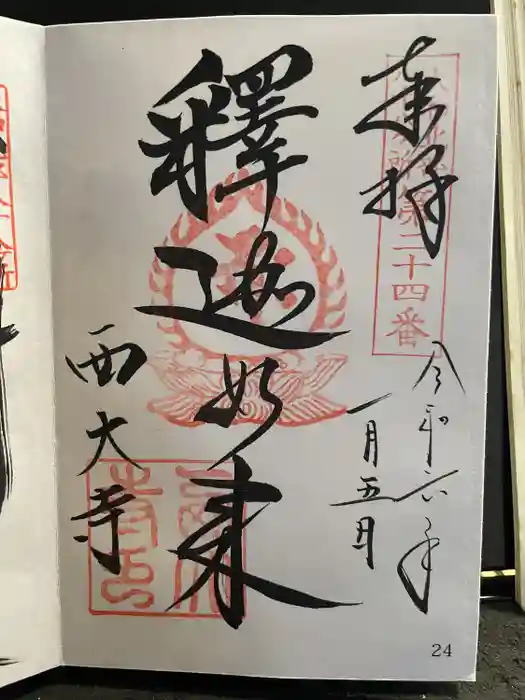 奉拝
第二十四番
令和六年
一月五日
釋迦如来
西大寺
24